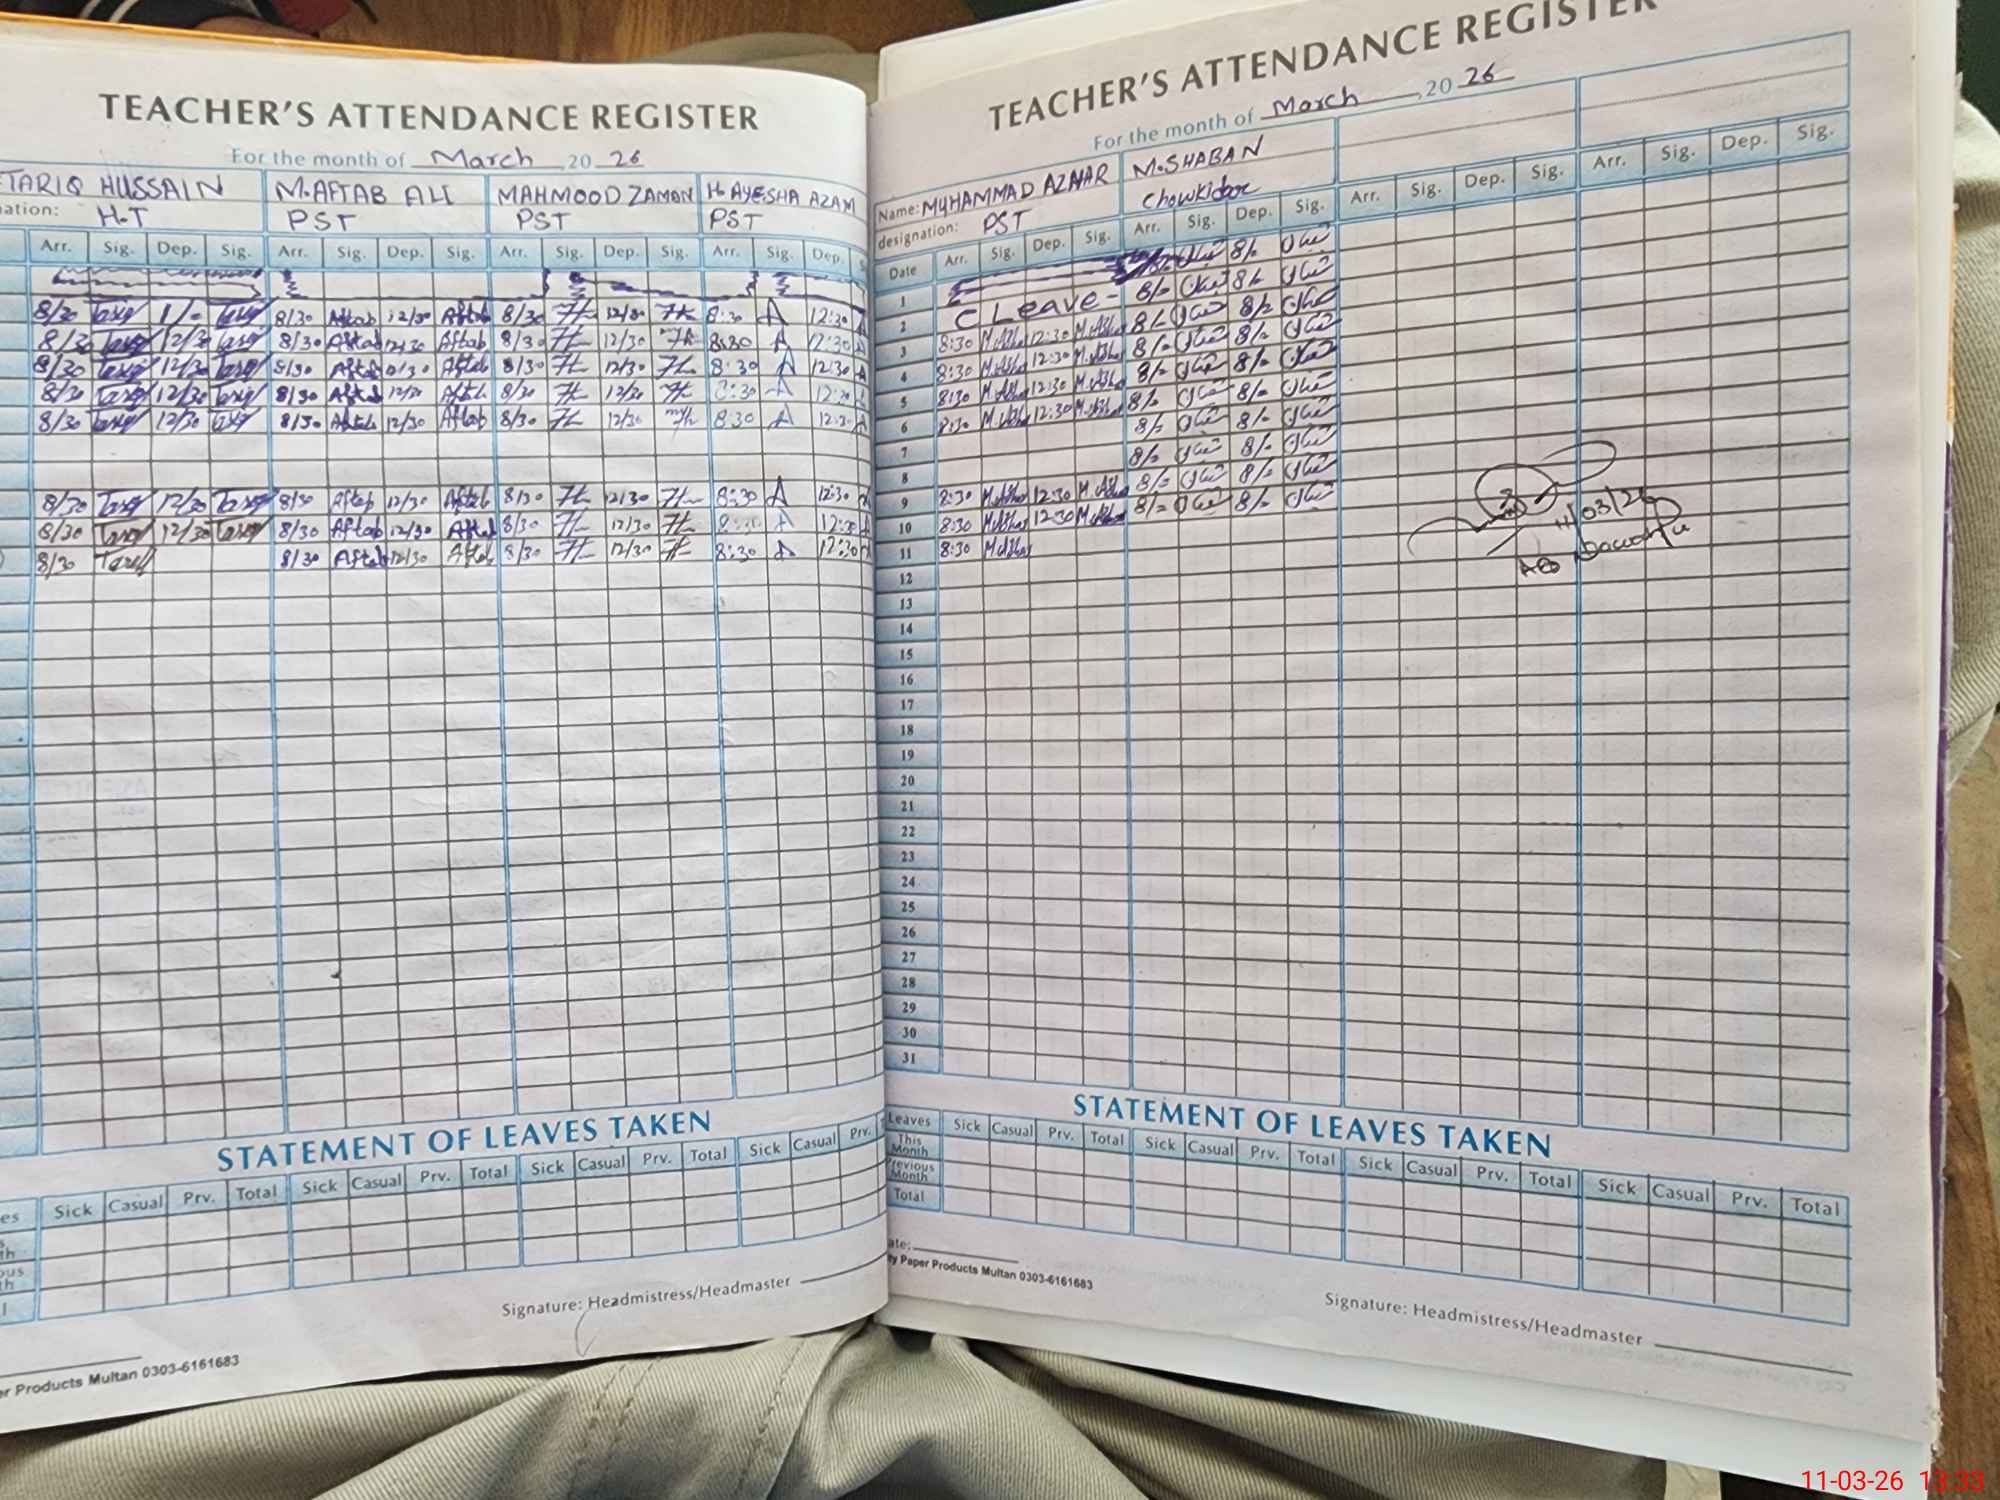 TEACHER'S ATTENDANCE REGISTER
For the month of March 20 26
TARIQ HUSSAIN M.AFTAB ALI MAHMOOD ZAMAN H. AYESHA AZAM
ation: H.T PST PST PST
Arr. Sig. Dep. Sig. Arr. Sig. Dep. Sig. Arr. Sig. Dep. Sig. Arr. Sig. Dep. S
8/30 Tariq 1/- Tariq 8/30 Aftab 12/30 Aftab 8/30 12/30 8:30 A 12:30
8/30 Tariq 12/30 Tariq 8/30 Aftab 12/30 Aftab 8/30 12/30 8:30 A 12:30
8/30 Tariq 12/30 Tariq 8/30 Aftab 12/30 Aftab 8/30 12/30 8:30 A 12:30
8/30 Tariq 12/30 Tariq 8/30 Aftab 12/30 Aftab 8/30 12/30 8:30 A 12:30
8/30 Tariq 12/30 Tariq 8/30 Aftab 12/30 Aftab 8/30 12/30 8:30 A 12:30
8/30 Tariq 12/30 Tariq 8/30 Aftab 12/30 Aftab 8/30 12/30 8:30 A 12:30
8/30 Tariq 12/30 Tariq 8/30 Aftab 12/30 Aftab 8/30 12/30 A 12:30
8/30 Tariq 8/30 Aftab 12/30 Aftab 8/30 12/30 8:30 A 12:30
STATEMENT OF LEAVES TAKEN
es Sick Casual Prv. Total Sick Casual Prv. Total Sick Casual Prv. Total Sick Casual Prv.
s
th
ous
th
l
Signature: Headmistress/Headmaster
er Products Multan 0303-6161683
TEACHER'S ATTENDANCE REGISTER
For the month of March, 20 26
Name: MUHAMMAD AZHAR M.SHABAN
designation: PST Chowkidar
Date Arr. Sig. Dep. Sig. Arr. Sig. Dep. Sig. Arr. Sig. Dep. Sig. Arr. Sig. Dep. Sig.
1 8/- 8/-
2 C Leave - 8/- 8/-
3 8:30 M.Azhar 12:30 M.Azhar 8/- 8/-
4 8:30 M.Azhar 12:30 M.Azhar 8/- 8/-
5 8:30 M.Azhar 12:30 M.Azhar 8/- 8/-
6 8:30 M.Azhar 12:30 M.Azhar 8/- 8/-
7 8/- 8/-
8 8/- 8/-
9 8:30 M.Azhar 12:30 M.Azhar 8/- 8/-
10 8:30 M.Azhar 12:30 M.Azhar 8/- 8/-
11 8:30 M.Azhar
11/03/26
AEO
12
13
14
15
16
17
18
19
20
21
22
23
24
25
26
27
28
29
30
31
STATEMENT OF LEAVES TAKEN
Leaves Sick Casual Prv. Total Sick Casual Prv. Total Sick Casual Prv. Total Sick Casual Prv. Total
This Month
Previous Month
Total
ate:
ty Paper Products Multan 0303-6161683
Signature: Headmistress/Headmaster
11-03-26 13:33